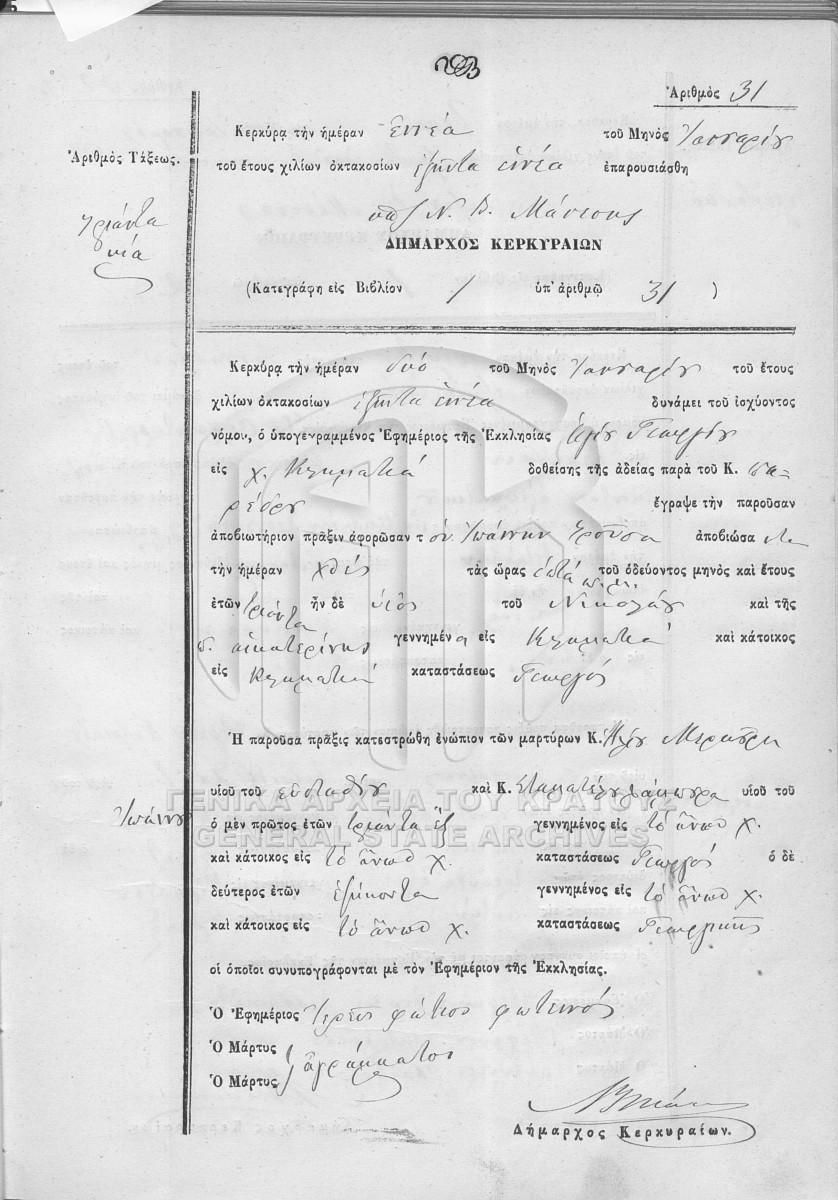 Ἀριθμὸς 31
Κερκύρᾳ τὴν ἡμέραν ἐννέα τοῦ Μηνὸς Ἰανουαρίου
Ἀριθμὸς Τάξεως.
τοῦ ἔτους χιλίων ὀκτακοσίων ἑξῆντα ἐννέα ἐπαρουσιάσθη
Τριάντα
ἕνα
Ν. Δ. Μάνεσης
ΔΗΜΑΡΧΟΣ ΚΕΡΚΥΡΑΙΩΝ
(Κατεγράφη εἰς Βιβλίον 1 ὑπ' ἀριθμῷ 31 )
Κερκύρᾳ τὴν ἡμέραν δύο τοῦ Μηνὸς Ἰανουαρίου τοῦ ἔτους
χιλίων ὀκτακοσίων ἑξῆντα ἐννέα δυνάμει τοῦ ἰσχύοντος
νόμου, ὁ ὑπογεγραμμένος Ἐφημέριος τῆς Ἐκκλησίας Ἁγίου Γεωργίου
εἰς χ. Κληματιά δοθείσης τῆς ἀδείας παρὰ τοῦ Κ. Πα-
ρέδρου ἔγραψε τὴν παροῦσαν
ἀποβιωτήριον πρᾶξιν ἀφορῶσαν τ ὸν Ἰωάννην ἀποβιώσα ντα
τὴν ἡμέραν χθὲς τὰς ὥρας ἑπτά τοῦ ὁδεύοντος μηνὸς καὶ ἔτους
ἐτῶν τριάντα ἦν δὲ υἱὸς τοῦ Νικολάου καὶ τῆς
αἰκατερίνης γεννημέν ος εἰς Κληματιά καὶ κάτοικος
εἰς Κληματιά καταστάσεως Γεωργός
Ἡ παροῦσα πρᾶξις κατεστρώθη ἐνώπιον τῶν μαρτύρων Κ.
υἱοῦ τοῦ εὐσταθίου καὶ Κ. υἱοῦ τοῦ
Ἰωάννου ὁ μὲν πρῶτος ἐτῶν τριάντα ἕξ γεννημένος εἰς τὸ ἄνω χ.
καὶ κάτοικος εἰς τὸ ἄνω χ. καταστάσεως Γεωργός ὁ δὲ
δεύτερος ἐτῶν ἑξήκοντα γεννημένος εἰς τὸ ἄνω χ.
καὶ κάτοικος εἰς τὸ ἄνω χ. καταστάσεως
οἱ ὁποῖοι συνυπογράφονται μὲ τὸν Ἐφημέριον τῆς Ἐκκλησίας.
Ὁ Ἐφημέριος Ἱερεὺς φώτιος φωτεινός
Ὁ Μάρτυς ἀγράμματοι
Ὁ Μάρτυς
Δήμαρχος Κερκυραίων.
ΓΕΝΙΚΑ ΑΡΧΕΙΑ ΤΟΥ ΚΡΑΤΟΥΣ
GENERAL STATE ARCHIVES